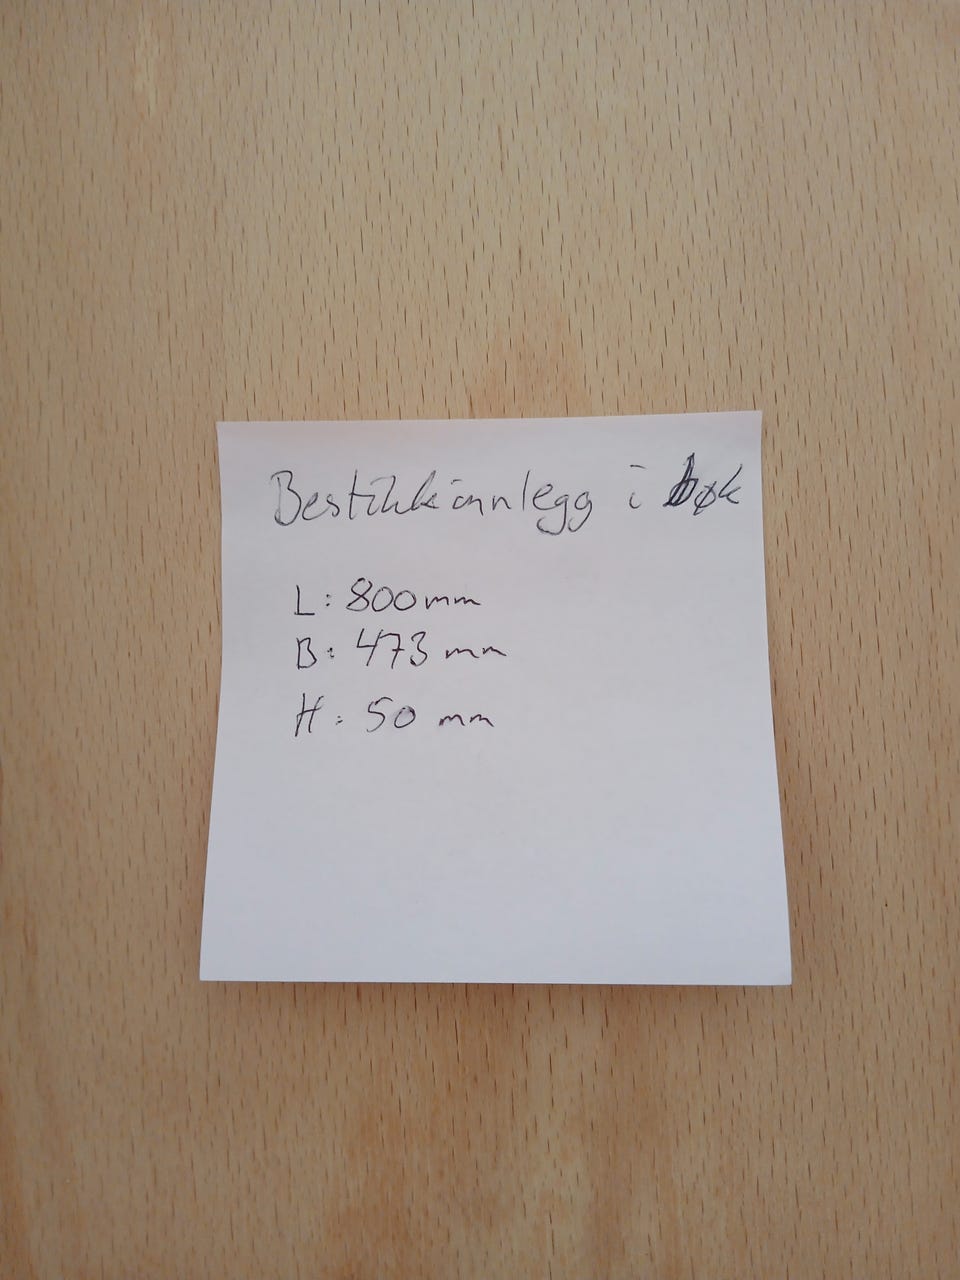 Bestikkinnlegg i bøk
L: 800mm
B: 473 mm
H: 50 mm